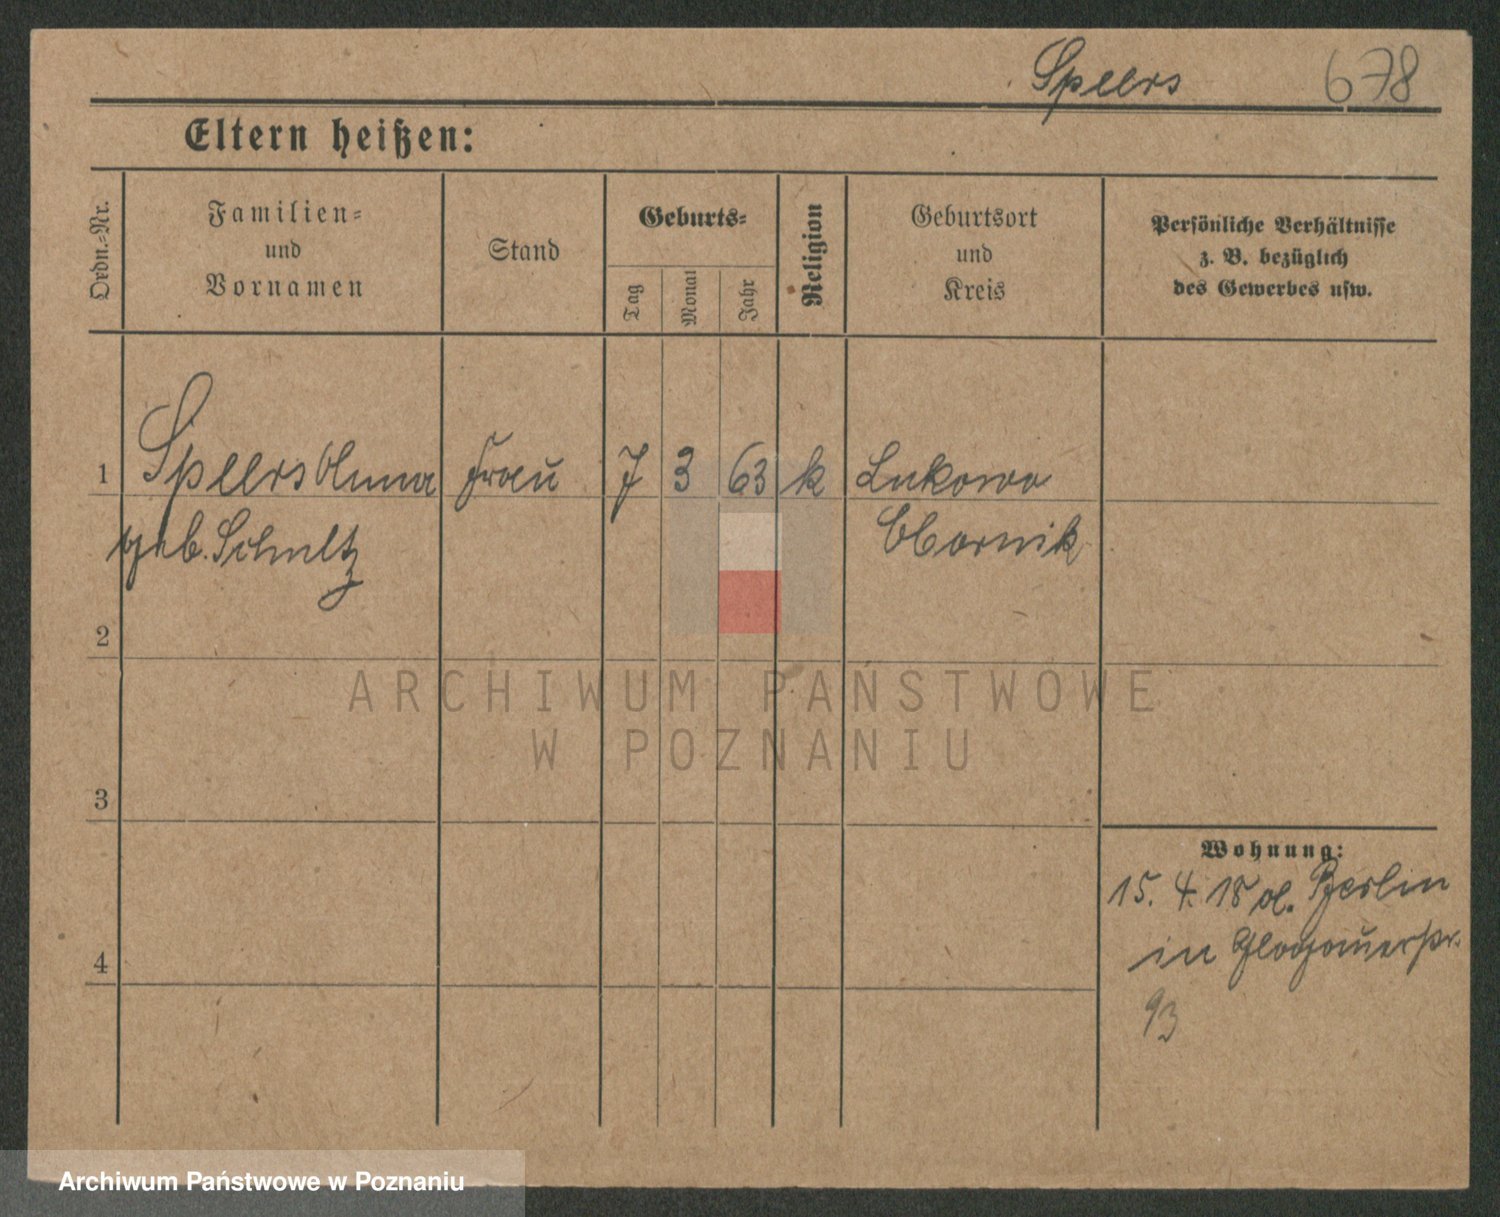 Speers 678
Eltern heißen:
Ordn.-Nr.
Familien-
und
Vornamen
Stand
Geburts-
Tag
Monat
Jahr
Religion
Geburtsort
und
Kreis
Persönliche Verhältnisse
z. B. bezüglich
des Gewerbes usw.
1 Speers Anna Frau 7 3 63 k Lukowo
geb. Schultz Obornik
2
3
4
Wohnung:
15. 4. 18 Berlin
in Glogauerstr.
93
ARCHIWUM PAŃSTWOWE
W POZNANIU
Archiwum Państwowe w Poznaniu